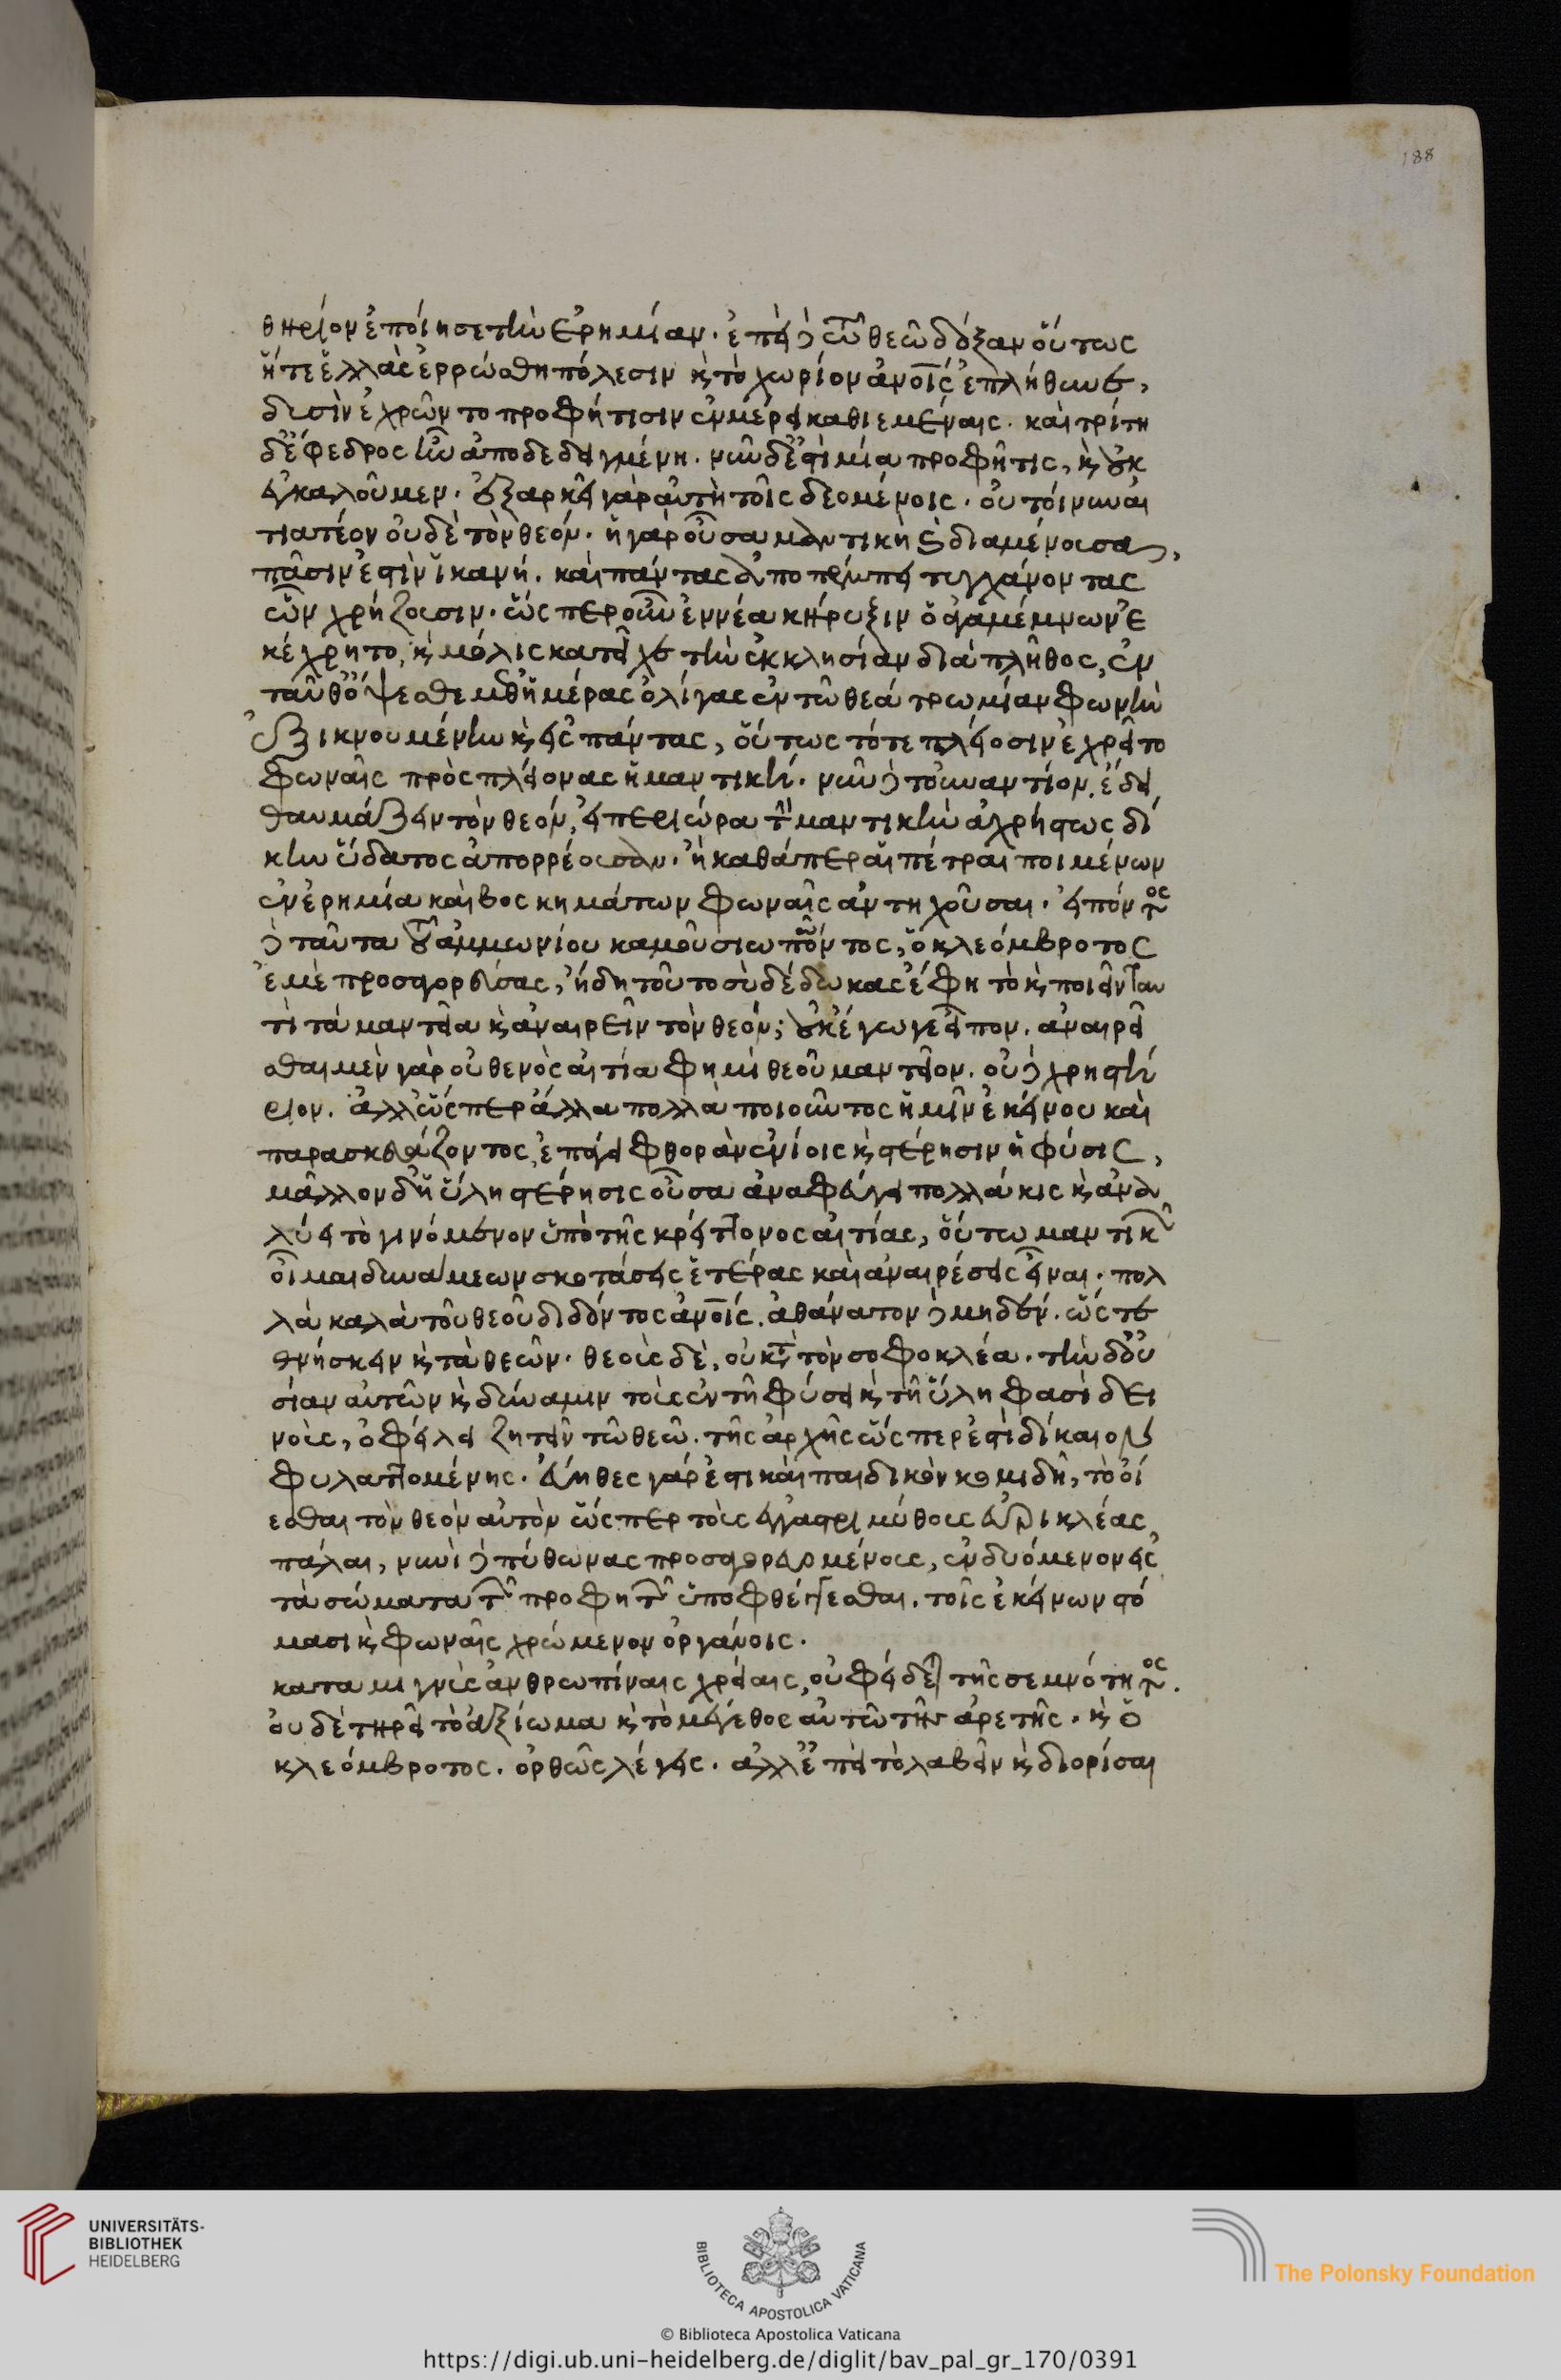 θηρίον ἐποίησε τὴν ἐρημίαν· ἐπεὶ δὲ τῶ θεῶ δόξαν οὕτως
ἥ τε ἑλλὰς ἐρρώσθη πόλεσιν κ̀ τὸ χωρίον ἀνοῖς ἐπλήθυνε,
δυσὶν ἐχρῶντο προφήτισιν ἐν μέρει καθιεμέναις. καὶ τρίτη
δ' ἔφεδρος ἦν ἀποδεδειγμένη. νῦν δ' ἐστὶ μία προφῆτις, κ̀ οὐκ
ἐγκαλοῦμεν· ἐξαρκεῖ γὰρ αὐτὴ τοῖς δεομένοις. οὐ τοίνυν αἰ
τιατέον οὐδὲ τὸν θεόν. ἡ γὰρ οὖσα μαντικὴ κ̀ διαμένουσα,
πᾶσιν ἐστὶν ἱκανή. καὶ πάντας ἀποπέμπει τυγχάνοντας
ὧν χρήζουσιν. ὥσπερ οὖν ἐννέα κήρυξιν ὁ ἀγαμέμνων ἐ
κέχρητο, κ̀ μόλις κατεῖχε τὴν ἐκκλησίαν διὰ πλῆθος, ἐν
ταῦθ' ὄψεσθε μεθ' ἡμέρας ὀλίγας ἐν τῶ θεάτρω μίαν φωνὴν
ἐξικνουμένην κ̀ εἰς πάντας, οὕτως τότε πλείοσιν ἐχρεῖτο
φωναῖς πρὸς πλείονας ἡ μαντική. νῦν δὲ τοὐναντίον, ἔδει
θαυμάζειν τὸν θεόν, εἰ περιεώρα τὴν μαντικὴν ἀχρήστως δί
κην ὕδατος ἀπορρέουσαν· ἢ καθάπερ αἱ πέτραι ποιμένων
ἐν ἐρημία καὶ βοσκημάτων φωναῖς ἀντηχοῦσαι. εἰπόντος
δὲ ταῦτα τοῦ ἀμμωνίου κἀμοῦ σιωπῶντος, ὁ κλεόμβροτος
ἐμὲ προσαγορεύσας, ἤδη τοῦτο σὺ δέδωκας ἔφη τὸ κ̀ ποιεῖν ταυ
τὶ τὰ μαντεῖα κ̀ ἀναιρεῖν τὸν θεόν; οὐκ ἔγωγε εἶπον. ἀναιρεῖ
σθαι μὲν γὰρ οὐθενὸς αἰτία φημὶ θεοῦ μαντεῖον. οὐδὲ χρηστή
ριον. ἀλλ' ὥσπερ ἄλλα πολλὰ ποιοῦντος ἡμῖν ἐκείνου καὶ
παρασκευάζοντος, ἐπάγει φθορὰν ἐνίοις κ̀ στέρησιν ἡ φύσις,
μᾶλλον δ' ἡ ὕλη στέρησις οὖσα ἀναφεύγει πολλάκις κ̀ ἀνα
λύει τὸ γινόμενον ὑπὸ τῆς κρείττονος αἰτίας, οὕτω μαντικῶν
οἶμαι δυναμεων σκοτώσεις ἑτέρας καὶ ἀναιρέσεις εἶναι. πολ
λὰ καλὰ τοῦ θεοῦ διδόντος ἀνοῖς. ἀθάνατον δὲ μηδέν. ὥστε
θνήσκειν κ̀ τὰ θεῶν. θεοὺς δὲ, οὐ κατὰ τὸν σοφοκλέα. τὴν δ' οὐ
σίαν αὐτῶν κ̀ δύναμιν τοὺς ἐν τῆ φύσει κ̀ τῆ ὕλη φασὶ δει
νοὺς, ὀφείλει ζητεῖν τῶ θεῶ. τῆς ἀρχῆς ὥσπερ ἐστὶ δίκαιον
φυλαττομένης. εὔηθες γάρ ἐστι καὶ παιδικὸν κομιδῆ, τὸ οἴ
εσθαι τὸν θεὸν αὐτὸν ὥσπερ τοὺς ἐγγαστριμύθους εὐρικλέας
πάλαι, νυνὶ δὲ πύθωνας προσαγορευομένους, ἐνδυόμενον εἰς
τὰ σώματα τῶν προφητῶν ὑποφθέγγεσθαι. τοῖς ἐκείνων στό
μασι κ̀ φωναῖς χρώμενον ὀργάνοις.
καταμιγνὺς ἀνθρωπίναις χρείαις, οὐ φείδεται τῆς σεμνότητος.
οὐδὲ τηρεῖ τὸ ἀξίωμα κ̀ τὸ μέγεθος αὐτῶ τῆς ἀρετῆς. κ̀ ὁ
κλεόμβροτος. ὀρθῶς λέγεις. ἀλλ' ἐπεὶ τὸ λαβεῖν κ̀ διορίσαι
188
UNIVERSITÄTS-
BIBLIOTHEK
HEIDELBERG
BIBLIOTECA APOSTOLICA VATICANA
The Polonsky Foundation
© Biblioteca Apostolica Vaticana
https://digi.ub.uni-heidelberg.de/diglit/bav_pal_gr_170/0391